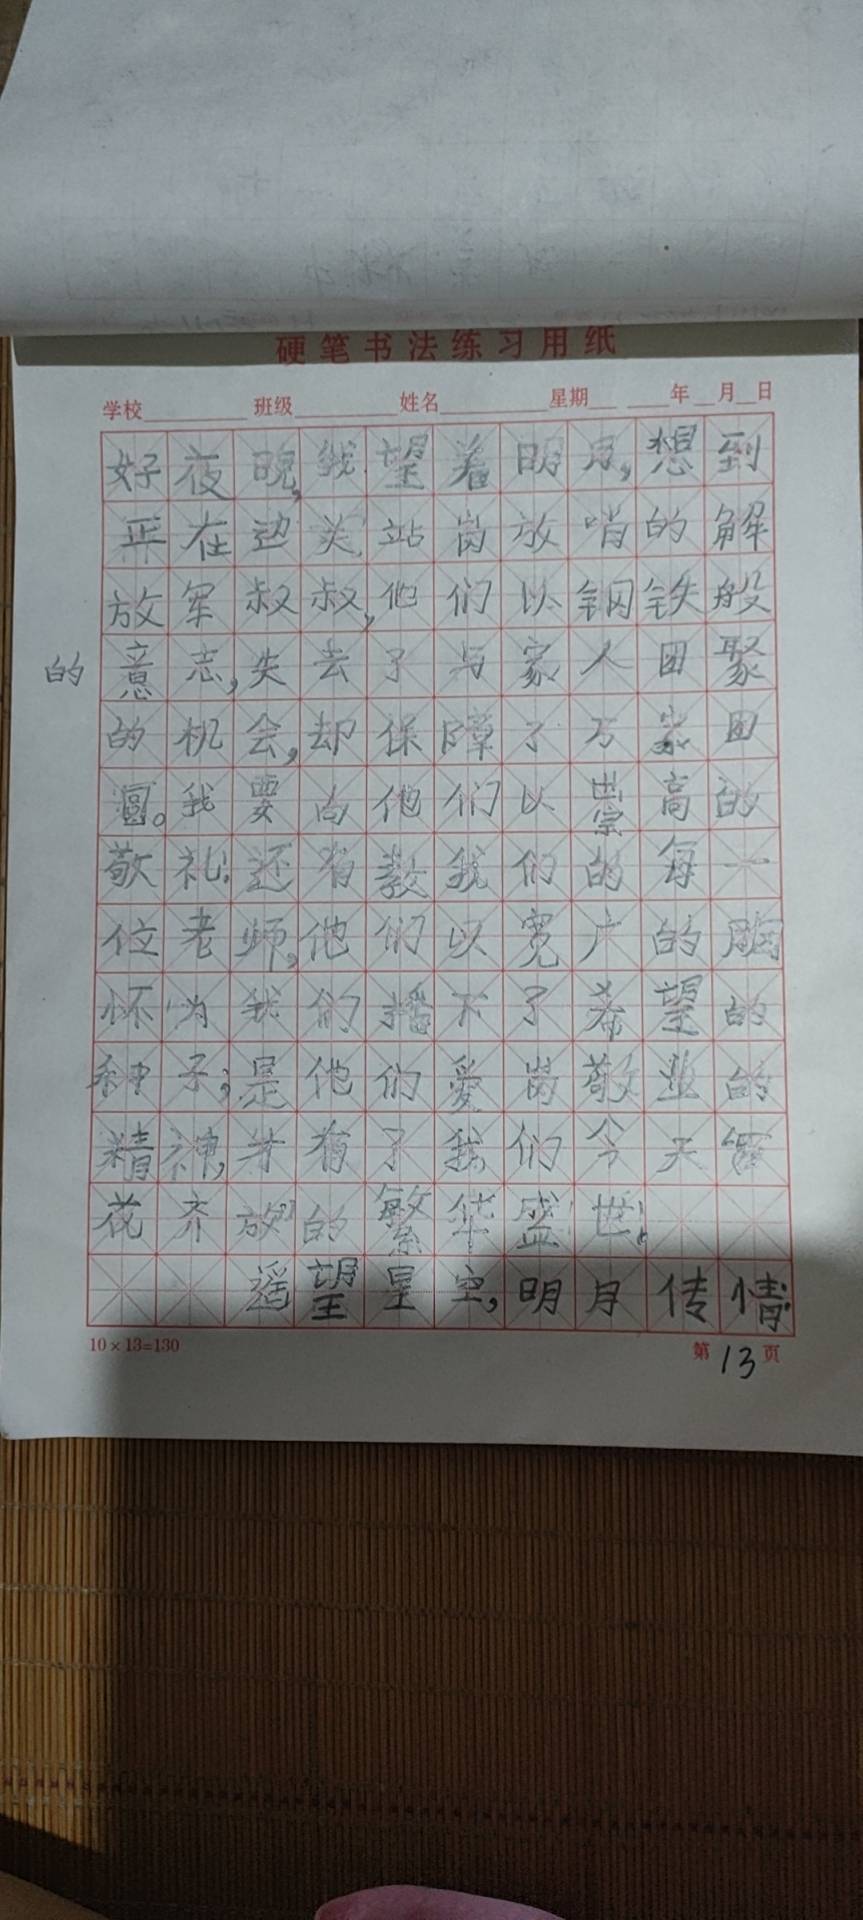 硬笔书法练习用纸
学校 班级 姓名 星期 年 月 日
好夜晚,我望着明月,想到
正在边关站岗放哨的解
放军叔叔,他们以钢铁般
的意志,失去了与家人团聚
的机会,却保障了万家团
圆。我要向他们以崇高的
敬礼!还有教我们的每一
位老师,他们以宽广的胸
怀为我们播下了希望的
种子;是他们爱岗敬业的
精神,才有了我们今天
花齐放的繁华盛世!
遥望星空,明月传情
10×13=130 第13页